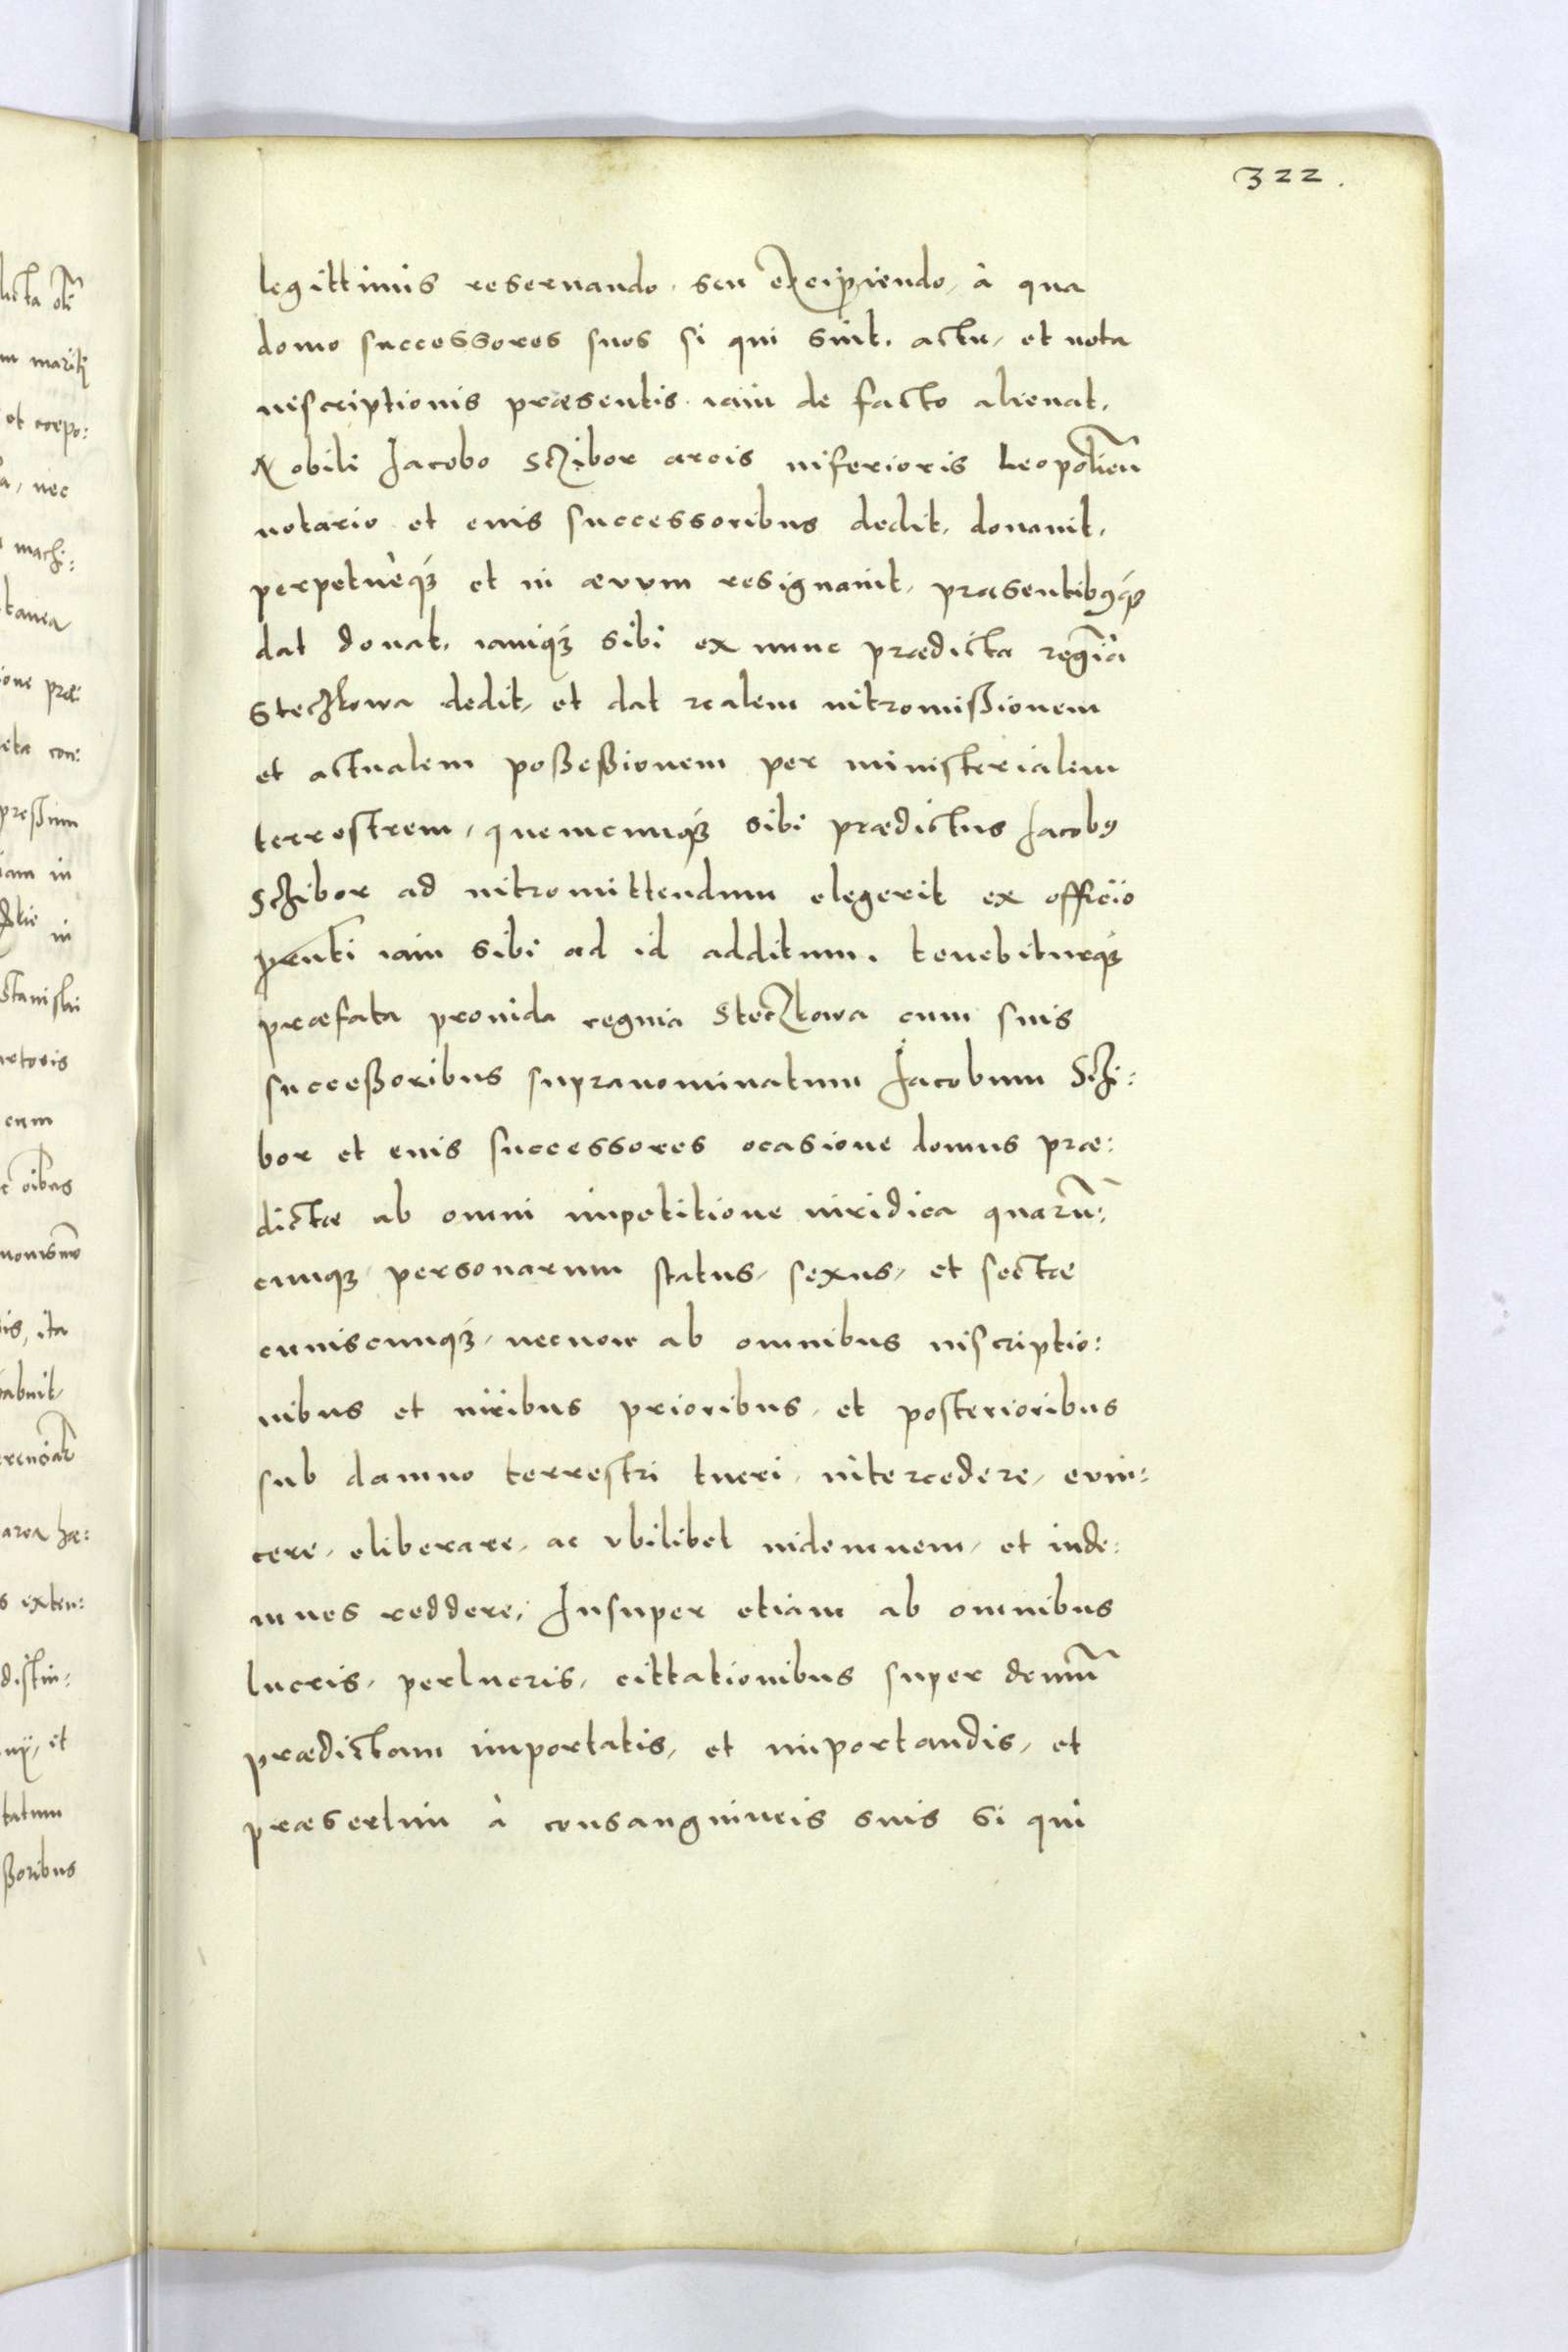 322.
legittimis reseruando, seu excipiendo, à qua
domo successores suos si qui sint, actu, et nota
inscriptionis præsentis iam de facto alienat,
Nobili Jacobo Sczibor arcis inferioris Leopolień
notario et euis successoribus dedit, donauit,
perpetuèq̃ et in ævum resignauit, præsentibꝰq̃
dat donat, iamq̃ sibi ex nunc prædicta regiā
Steczkowa dedit, et dat realem intromißionem
et actualem poßeßionem per ministerialem
terrestrem, quemcunq̃ sibi prædictus Jacobꝰ
Sczibor ad intromittendum elegerit ex officio
pñti iam sibi ad id additum. tenebiturq̃
præfata prouida regina Steczkowa cum suis
succeßoribus supranominatum Jacobum Sczi:
bor et euis successores ocasione domus præ:
dictæ ab omni impetitione iuridica quarū:
cunq̃ personarum status, sexus, et sectæ
cuuiscunq̃, necnon ab omnibus inscriptio:
nibus et iuribus prioribus, et posterioribus
sub damno terrestri tueri, intercedere, euin:
cere, eliberare, ac vbilibet indemnem, et inde:
mnes reddere, Insuper etiam ab omnibus
lucris, perlucris, cittationibus super domū
prædictam importatis, et importandis, et
præsertim à consanguineis suis si qui